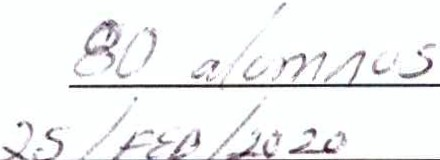 80 alomnos
25/FEB/2020